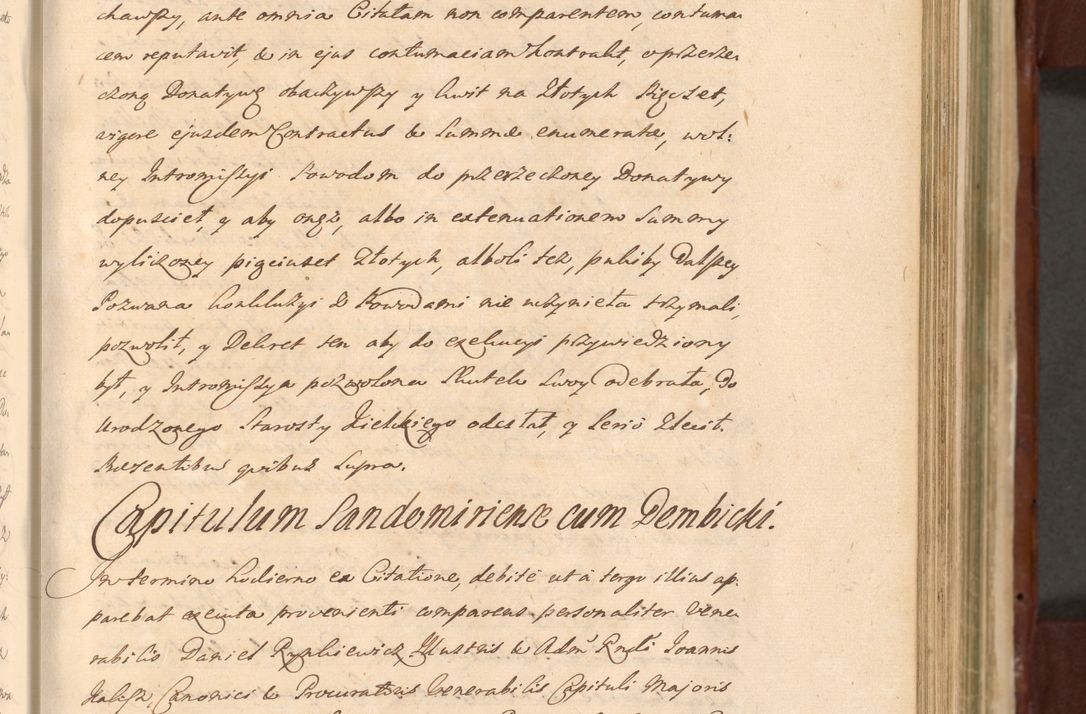 chawszy, ante omnia Citatam non comparentem, contuma
cem reputavit, & in ejus contumaciam Kontrakt, o przerze
czoną Donatywę obaczywszy y kwit na Złotych Pięćset,
vigore ejusdem Contractus & Summæ enumeratæ, wol:
ney Intromissyi Powodom do przerzeczoney Donatywy
dopuścieł, y aby onęż, albo in extenuationem Summy
wyliczoney pięciuset Złotych, alboli też, pukiby dalszey
Pozwana konkluzyi z Powodami nie uczynieła trzymali,
pozwolił, y Dekret ten aby do exekucyi przywiedziony
był, y Intromissya pozwolona Skutek swoy odebrała, do
Urodzonego Starosty Kieleckiego odesłał, y serio Zlecił.
Præsentibus quibus Supra.
Capitulum Sandomiriense cum Dembicki.
In termino hodierno ex Citatione, debitè ut à tergo illius ap
parebat exeuta provenienti comparens personaliter Vene
rabilis Daniel Rynkiewicz Illustris & Adm Rndi Joannis
Canonici & Procuratoris Venerabilis Capituli Majoris